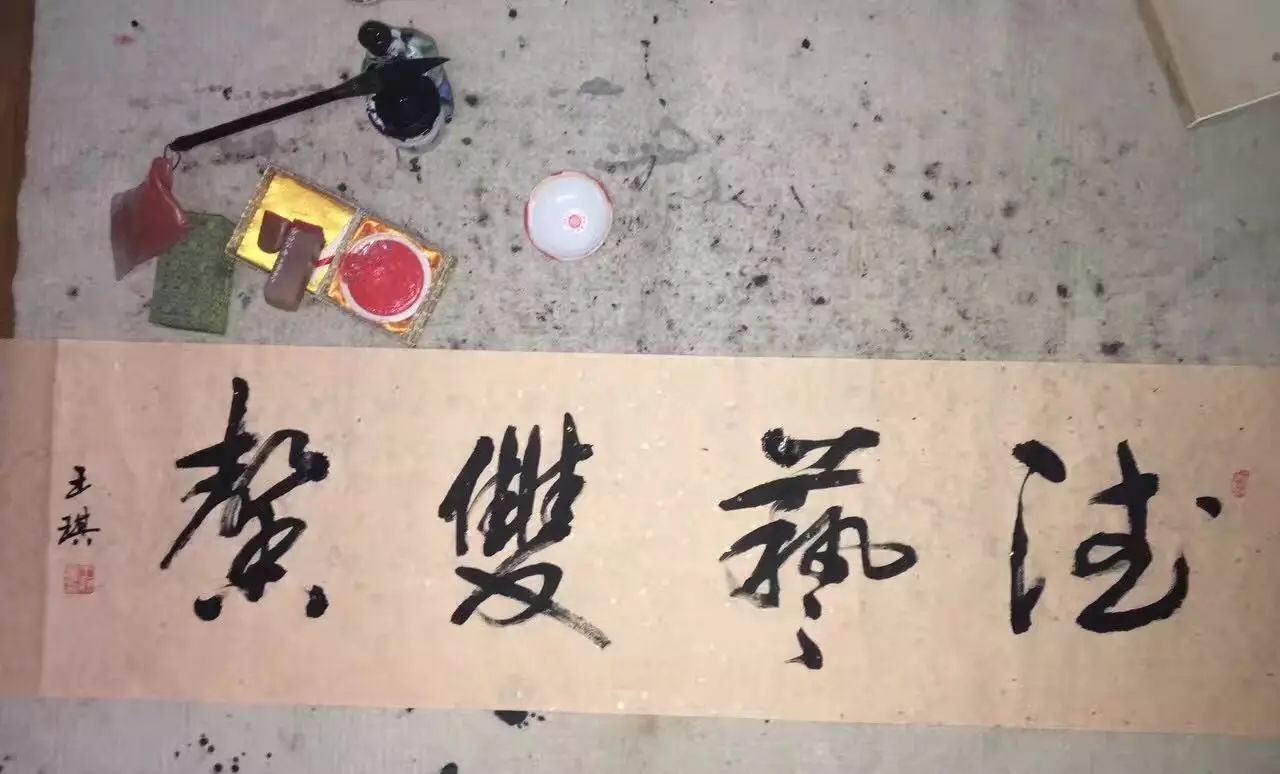 德藝雙馨
王琪